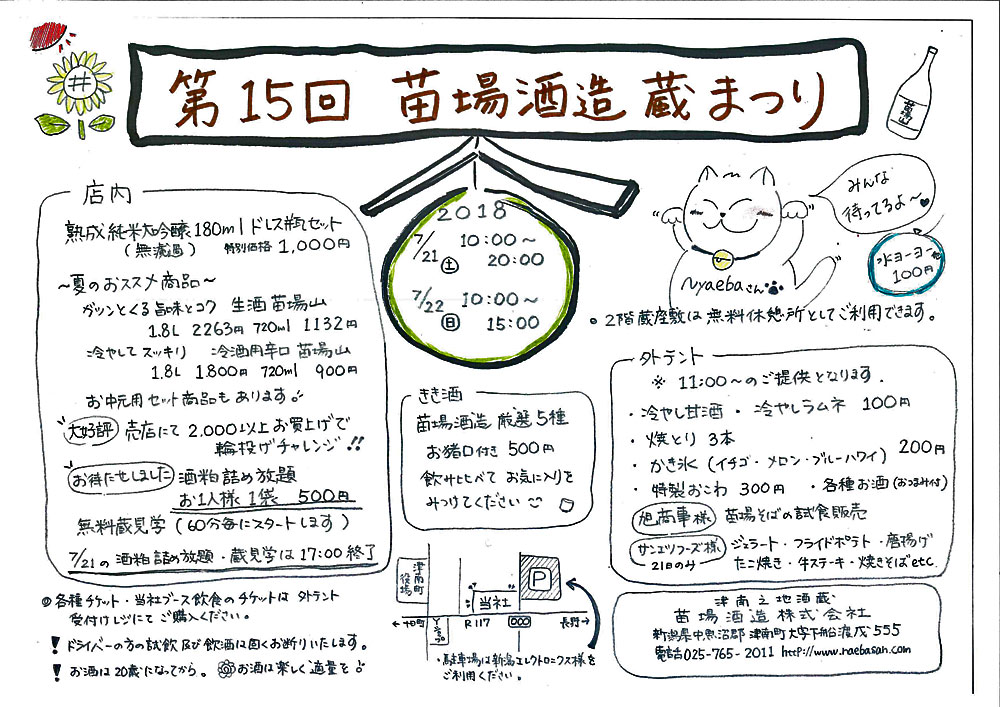 第15回 苗場酒造 蔵まつり
苗場山
2018
7/21 (土) 10:00〜20:00
7/22 (日) 10:00〜15:00
みんな
待ってるよ〜
水ヨーヨー他
100円
Nyaebaさん
。2階蔵座敷は無料休憩所としてご利用できます。
店内
熟成純米大吟醸180ml ドレス瓶セット
(無濾過) 特別価格 1,000円
〜夏のおススメ商品〜
ガツンとくる旨味とコク 生酒 苗場山
1.8L 2263円 720ml 1132円
冷やしてスッキリ 冷酒用辛口 苗場山
1.8L 1800円 720ml 900円
お中元用セット商品もあります♪
大好評 売店にて 2,000以上お買上げで
輪投げチャレンジ!!
お待たせしました 酒粕詰め放題
お1人様 1袋 500円
無料蔵見学 (60分毎にスタートします)
7/21の酒粕詰め放題・蔵見学は17:00終了
◎各種チケット・当社ブース飲食のチケットは外テント
受付けレジにてご購入ください。
! ドライバーの方の試飲及び飲酒は固くお断りいたします。
! お酒は20歳になってから。お酒は楽しく適量を♪
きき酒
苗場酒造 厳選5種
お猪口付き 500円
飲み比べて お気に入りを
みつけてください
外テント
※ 11:00〜のご提供となります.
・冷やし甘酒・冷やしラムネ 100円
・焼とり 3本
・かき氷 (イチゴ・メロン・ブルーハワイ) 200円
・特製おこわ 300円 ・各種お酒(おつまみ付)
旭商事様 苗場そばの試食販売
サンエツフーズ様 21日のみ ジェラート・フライドポテト・唐揚げ
たこ焼き・牛ステーキ・焼きそばetc.
津南町
役場
当社
P
←十日町
R117
長野→
・駐車場は新潟エレクトロニクス様を
ご利用ください。
津南之地酒蔵
苗場酒造株式会社
新潟県中魚沼郡津南町大字下船渡戊555
電話025-765-2011 http://www.naebasan.com